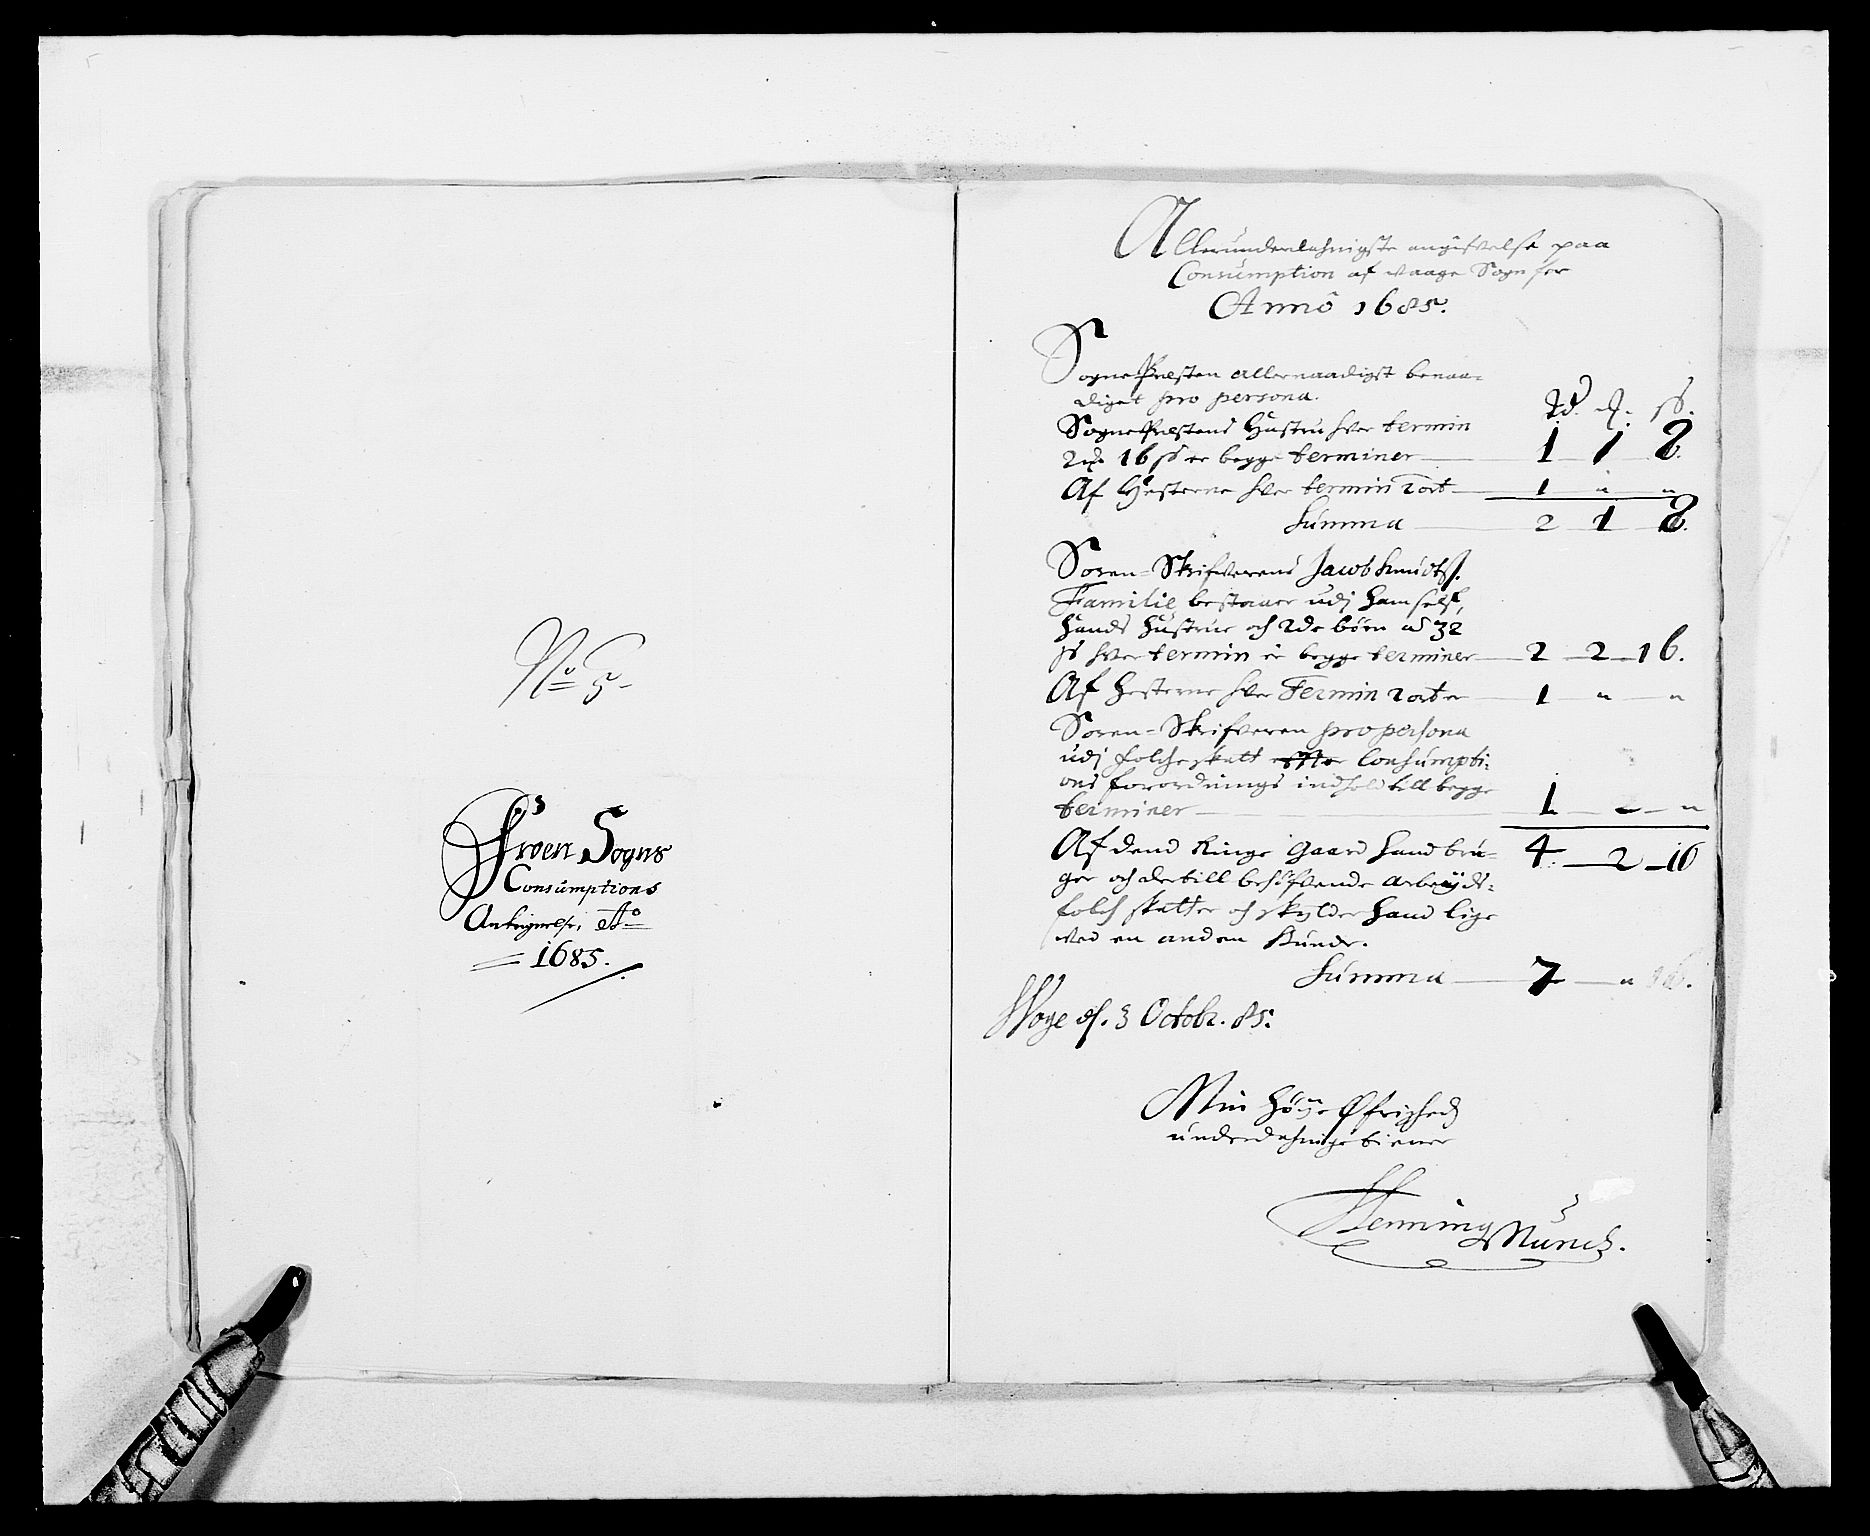 No 5.
Froen Sogns
Consumptions
Ao
1685.
Allerunderdehnigste angifvelse paa
Consumption af Vaage Sogn for
Anno 1685.
Sogne Præsten allernaadigst benaa-
diget pro persona.
Rd. ß.
Sogne Præstens Hustru hver termin
16 ß er begge terminer 1 1 8.
Af Hesterne hver termin 2 ort 1 " "
Summa 2 1 8.
Soren-Skrifverens Jacob Knudtß.
Familie bestaaer udj ham self,
hands hustrue och 2de börn a 32
ß hver termin er begge terminer 2 2 16.
Af hesterne hver Termin 2 ort er 1 " "
Soren-Skrifveren pro persona
udj folcheskatt efter Consumpti-
ons forordnings indhold till begge
terminer 1 "
4. 2 16
Af dend Ringe gaard hand bru-
ger och dertill behöfvende arbeyds-
folch skatter och skylder hand lige
ved en anden bunde.
Summa 7 " 16.
Woge d. 3 Octobr. 85.
Min höye Øfrighed
underdehnige tiener
Henning Munch.